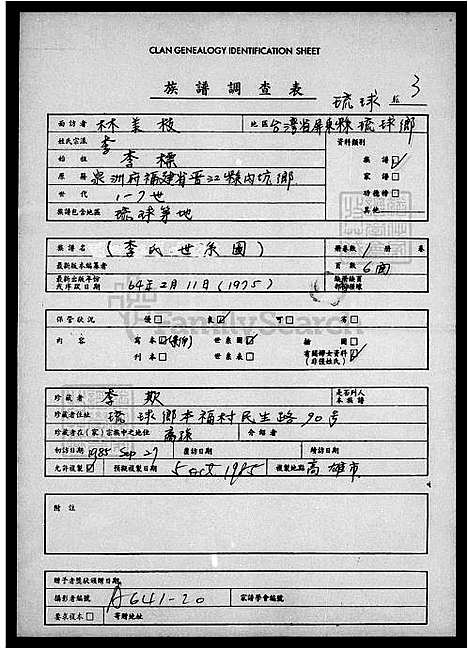 CLAN GENEALOGY IDENTIFICATION SHEET
族譜調查表
琉球 3
面訪者 林美枝 地區 台灣省屏東縣琉球鄉
姓氏宗派 李 資料類別
始祖 李標 族譜 ☑
原籍 泉州府福建省晋江縣內坑鄉 家譜 □
世代 1-7世 功德榜 □
族譜包含地區 琉球等地 其他
族譜名 (李氏世系圖) 冊卷數 1 冊 卷
最新版本編纂者 頁數 6面
最新出版年份或序跋日期 64年2月11日(1975)
保管狀況 優□ 良☑ 可□ 劣□
內容 寫本☑(影印) 世系圖☑ 繪圖□
刊本□ 世系表□ 有關婦女資料☑(非僅姓氏)
珍藏者 李欺 是否列入本族譜
珍藏者住址 琉球鄉本福村民生路90号
珍藏者在(家)宗族中之地位 高孫 介紹者
初訪日期 1985 Sep 27 覆訪日期 續訪日期
允許複製☑ 預擬複製日期 5 oct 1985 複製地點 高雄市
附註
贈予者獎狀頒贈日期
攝影者編號 A641-20 家譜學會編號
要求複本□ 寄贈地址
FamilySearch